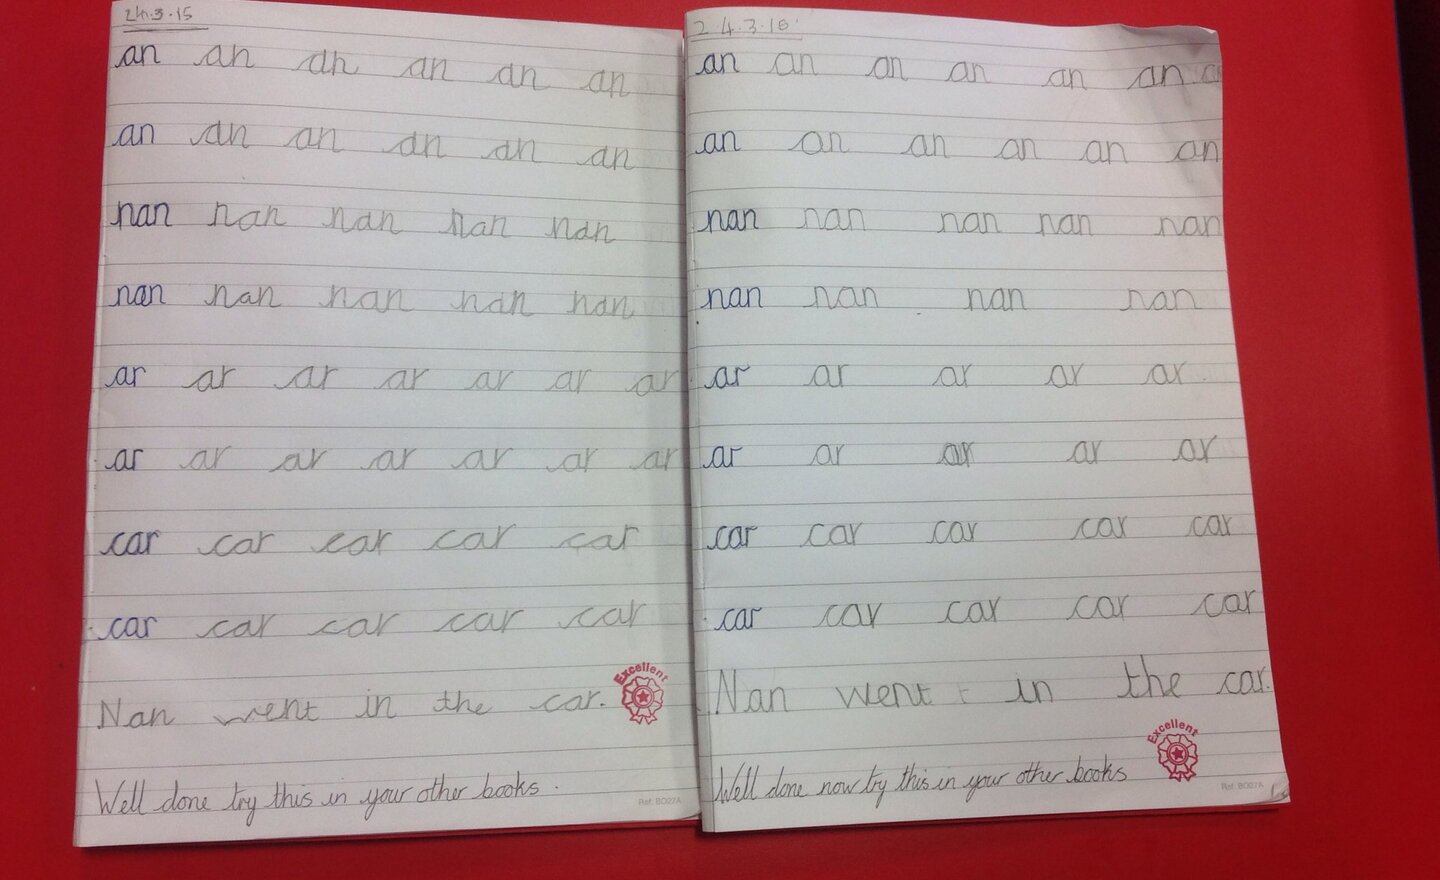 24.3.15
an an an an an an
an an an an an an
nan nan nan nan nan
nan nan nan nan nan
ar ar ar ar ar ar ar
ar ar ar ar ar ar ar
car car car car car
car car car car car
Nan went in the car.
Excellent
Well done try this in your other books.
Ref: BO27A
24.3.15
an an an an an an
an an an an an an
nan nan nan nan nan
nan nan nan nan
ar ar ar ar ar
ar ar ar ar ar
car car car car car
car car car car car
Nan went in the car.
Excellent
Well done now try this in your other books
Ref: BO27A